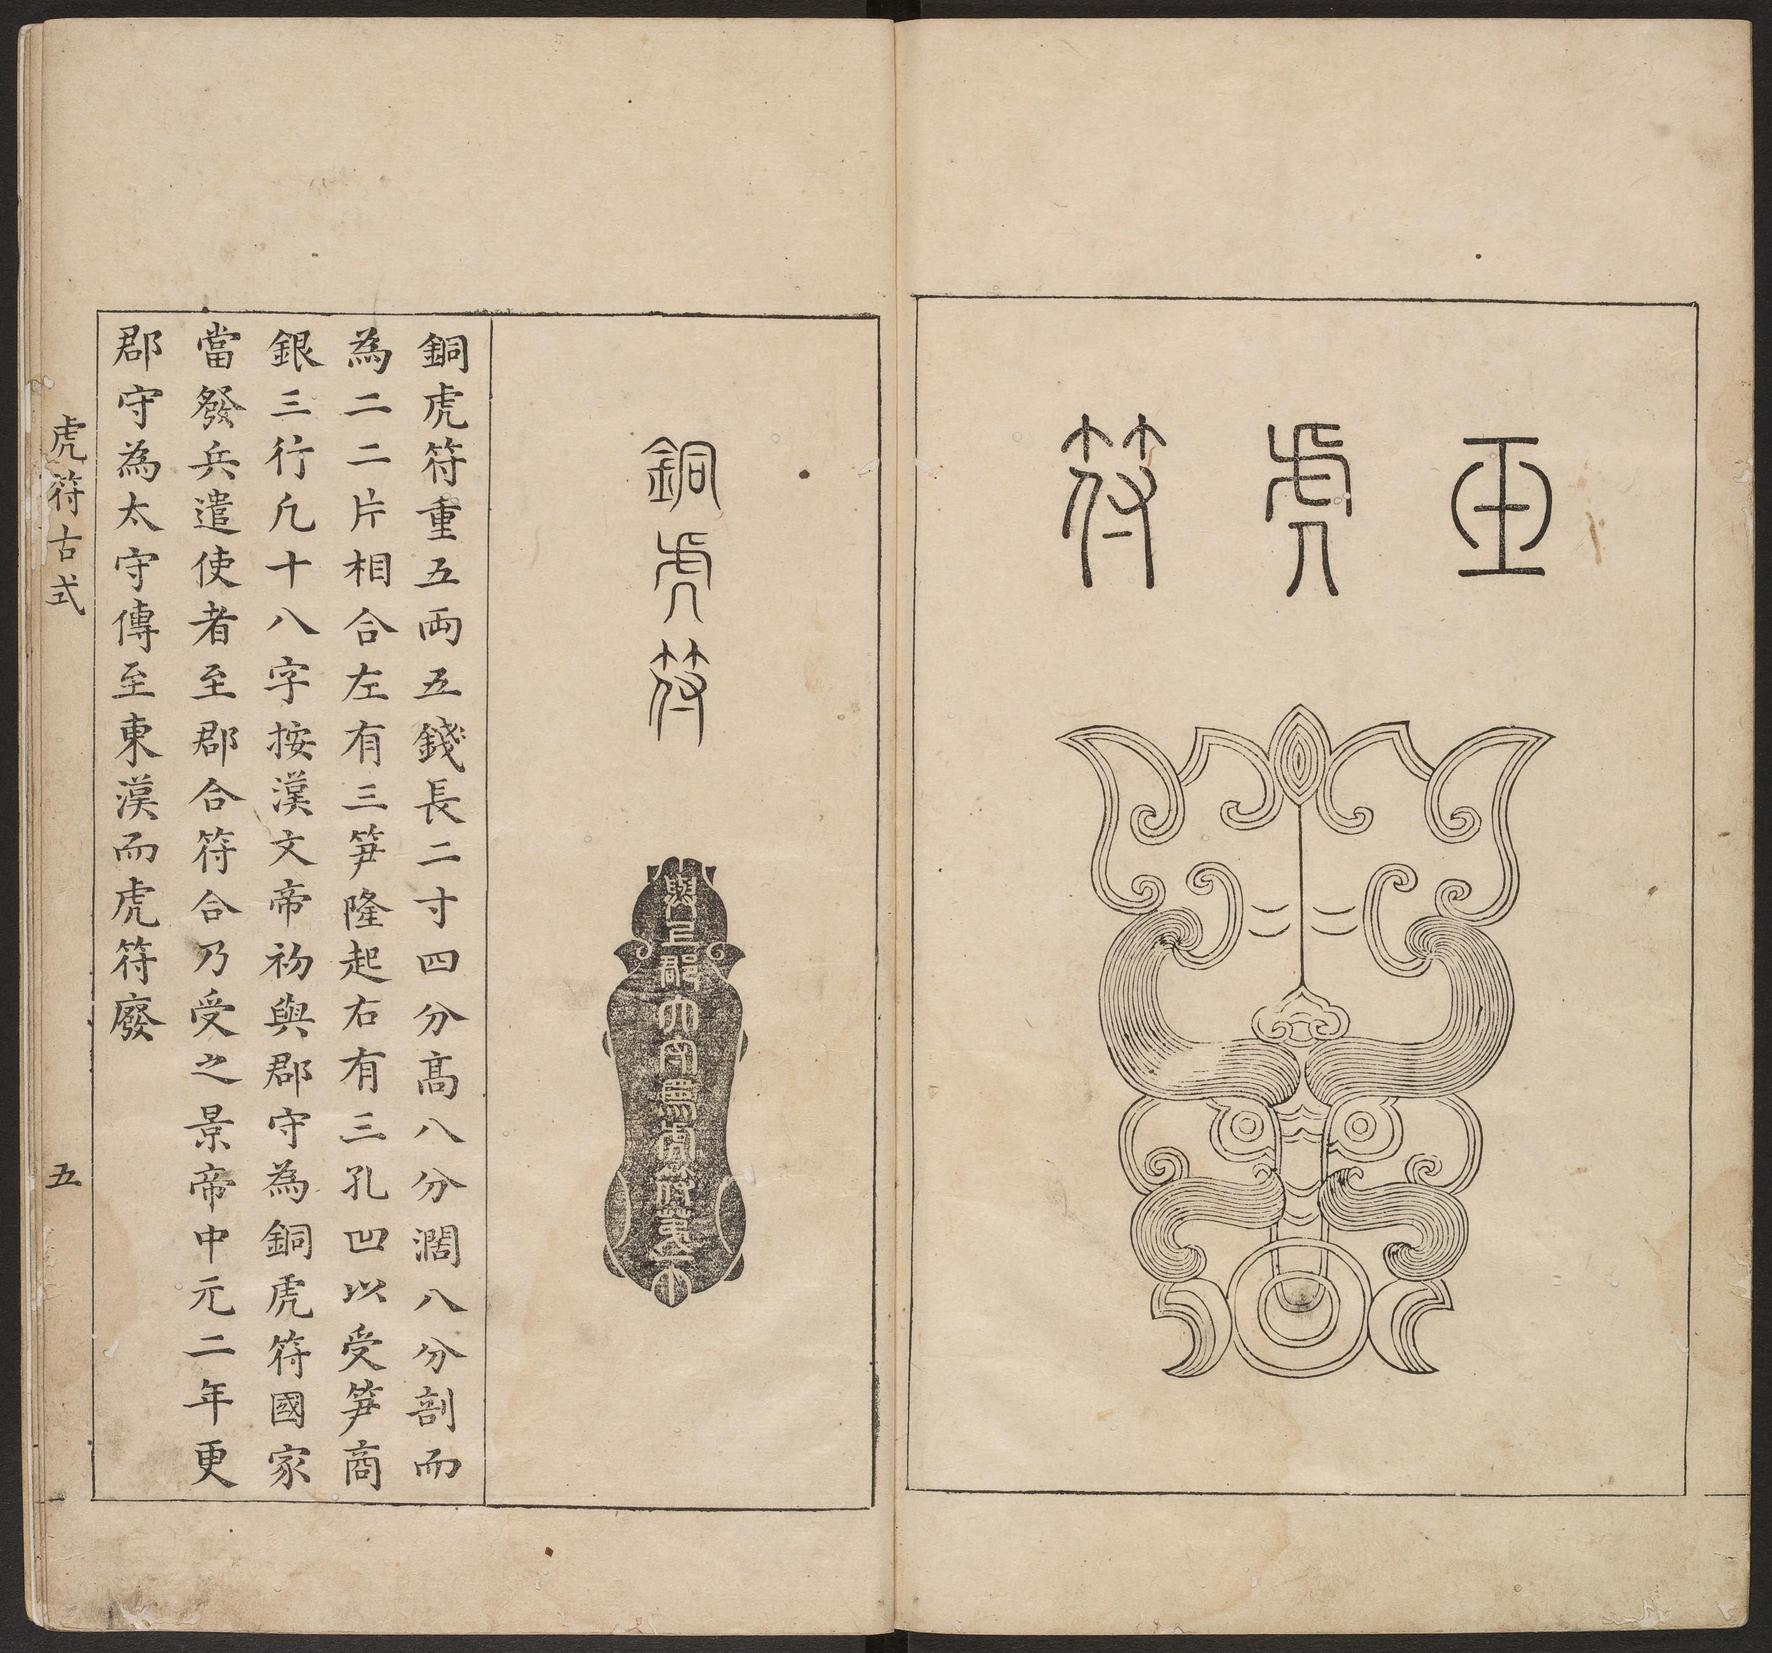 玉虎符
銅虎符
與巨郡太守為虎符第二
銅虎符重五両五錢長二寸四分髙八分濶八分剖而
為二二片相合左有三笋隆起右有三孔凹以受笋商
銀三行凢十八字按漢文帝初與郡守為銅虎符國家
當發兵遣使者至郡合符合乃受之景帝中元二年更
郡守為太守傳至東漢而虎符廢
虎符古式
五